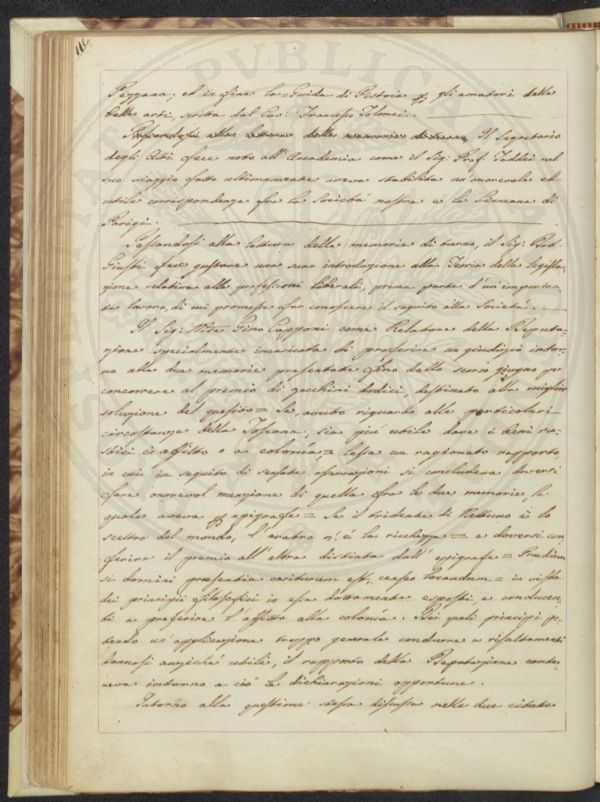 116
Pezzana; ed in fine la = Guida di Pistoia p gli amatori delle
belle arti, scritta dal Cav: Francesco Tolomei.
Il Segretario
degli Atti fece noto all'Accademia come il Sig: Prof. Taddei nel
suo viaggio fatto ultimamente aveva stabilita un'onorevole ed
utile corrispondenza fra la Società nostra e la Linneana di
Parigi.
Passandosi alla lettura delle memorie di turno, il Sig: Dot.
Giusti fece gustare una sua introduzione alla Teoria della legisla-
zione relativa alle professioni liberali, prima parte d'un importan-
te lavoro, di cui promesse far conoscere il seguito alla Società.
Il Sig: Mse Gino Capponi come Relatore della Deputa-
zione specialmente incaricata di proferire un giudizio intor-
no alle due memorie presentate fino dallo scorso giugno per
concorrere al premio di zecchini dodici, destinato alla miglior
soluzione del quesito = Se, avuto riguardo alle particolari
circostanze della Toscana, sia più utile dare i Beni ru-
stici in affitto o a colonìa = lesse un ragionato rapporto
in cui in seguito di sensate osservazioni si concludeva doversi
fare onorevol menzione di quella fra le due memorie, la
quale aveva p epigrafe = Se il tridente di Nettuno è lo
scettro del mondo, l'aratro n'è la ricchezza = e doversi con-
ferire il premio all'altra distinta dall'epigrafe = Praedium
si domini praesentia cariturum est, censeo locandum = in vista
dei principii filosofici in essa dottamente esposti, e conducen-
ti a preferire l'affitto alla colonìa. Dei quali principj po-
tendo un'applicazione troppo generale condurre a risultamenti
dannosi anzichè utili, il rapporto della Deputazione conte-
neva intorno a ciò le dichiarazioni opportune.
Intorno alla questione stessa discussa nelle due citate